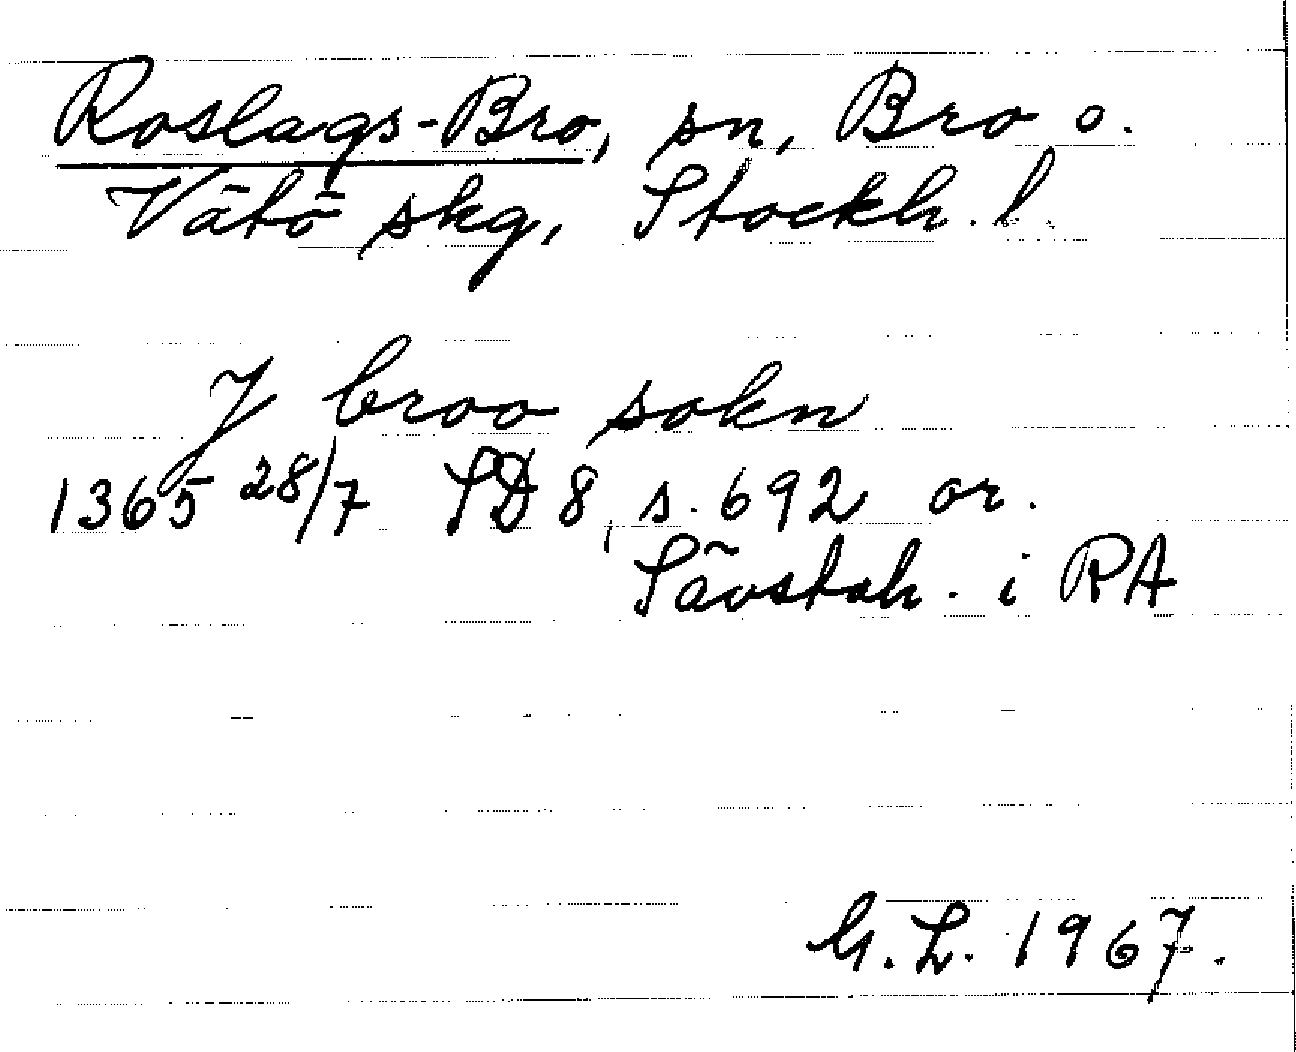 Roslags-Bro, sn, Bro o.
Vätö skg, Stockh. l.
J broo sokn
1365 28/7 SD 8, s. 692 or.
Sävstah. i RA
G. L. 1967.